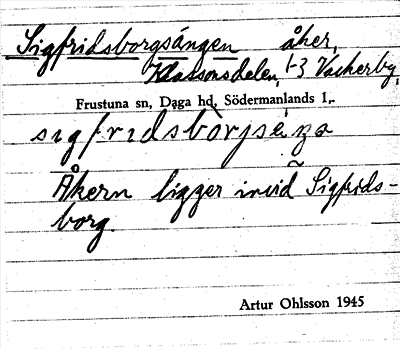 Sigfridsborgsängen åker,
Klassonsdelen, 1-3 Vackerby,
Frustuna sn, Daga hd, Södermanlands l,
Åkern ligger invid Sigfrids-
borg.
Artur Ohlsson 1945